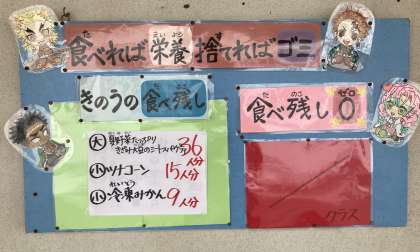 食べれば栄養捨てればゴミ
きのうの食べ残し
大 夏野菜たっぷり
きざみ大豆のミートスパゲティ 36人分
小 ツナコーン 15人分
小 冷凍みかん 9人分
食べ残し0
クラス